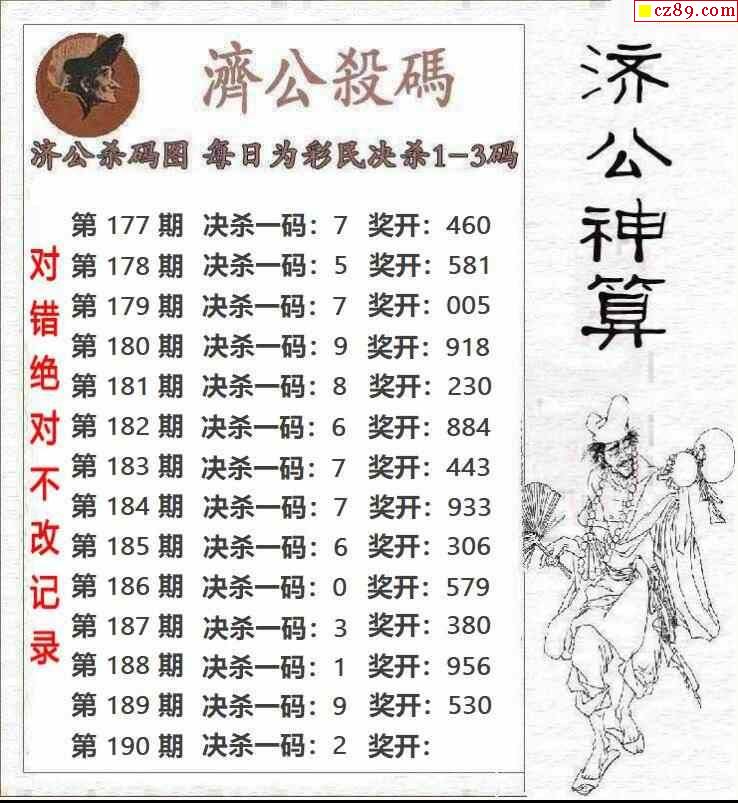 cz89.com
濟公殺碼
济公杀码图 每日为彩民决杀1-3码
第 177 期 决杀一码：7 奖开：460
第 178 期 决杀一码：5 奖开：581
第 179 期 决杀一码：7 奖开：005
第 180 期 决杀一码：9 奖开：918
第 181 期 决杀一码：8 奖开：230
第 182 期 决杀一码：6 奖开：884
第 183 期 决杀一码：7 奖开：443
第 184 期 决杀一码：7 奖开：933
第 185 期 决杀一码：6 奖开：306
第 186 期 决杀一码：0 奖开：579
第 187 期 决杀一码：3 奖开：380
第 188 期 决杀一码：1 奖开：956
第 189 期 决杀一码：9 奖开：530
第 190 期 决杀一码：2 奖开：
对错绝对不改记录
济公神算